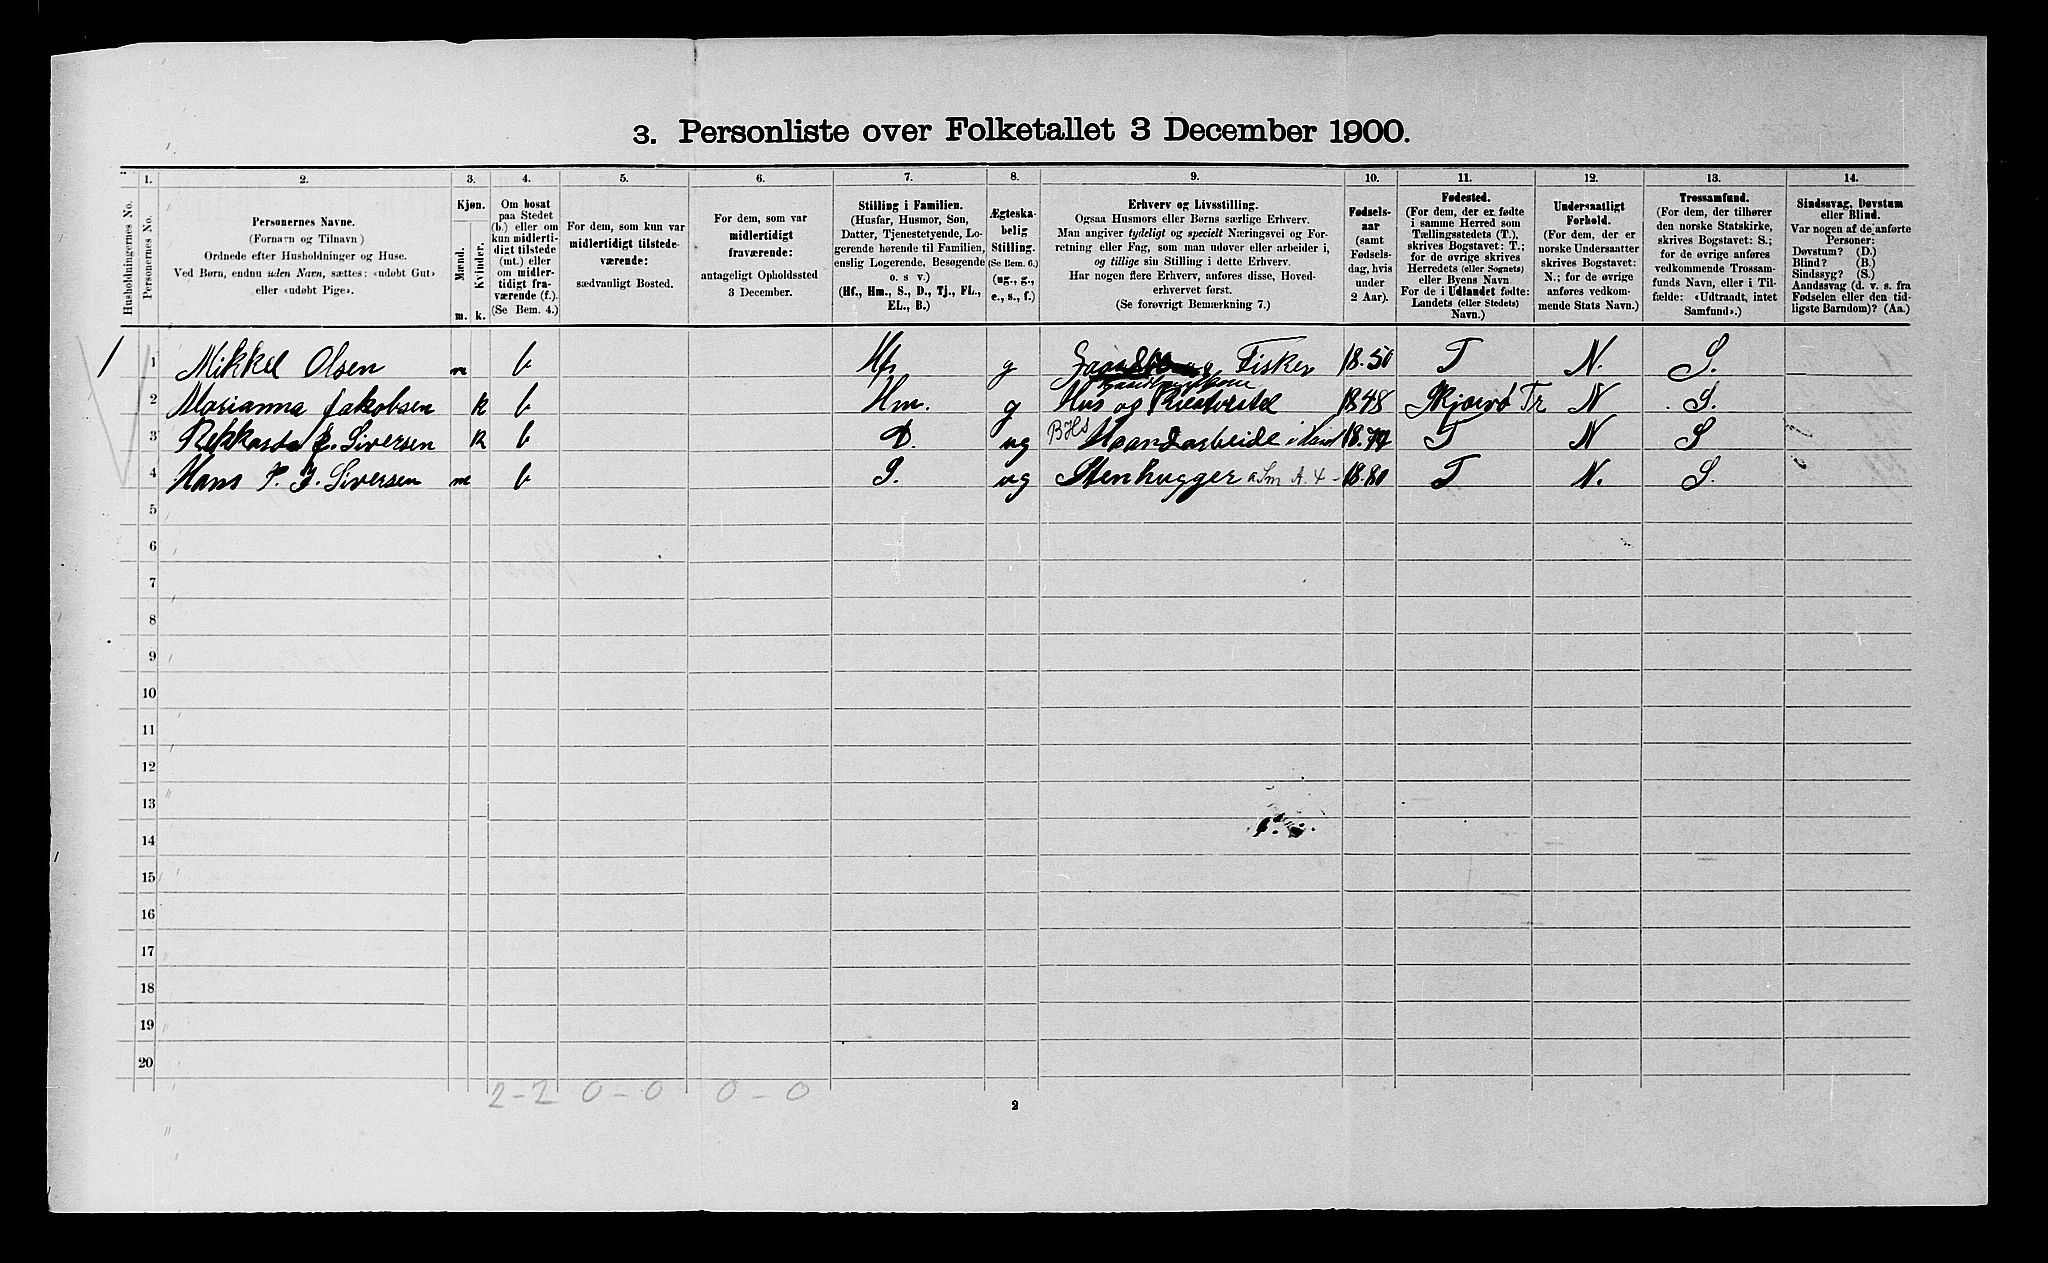 3. Personliste over Folketallet 3 December 1900.
1. 2. 3. 4. 5. 6. 7. 8. 9. 10. 11. 12. 13. 14.
Husholdningernes No.
Personernes No.
Personernes Navne.
(Fornavn og Tilnavn)
Ordnede efter Husholdninger og Huse.
Ved Børn, endnu uden Navn, sættes: «udøbt Gut»
eller «udøbt Pige».
Kjøn.
Mænd.
Kvinder.
m. k.
Om bosat
paa Stedet
(b.) eller om
kun midlerti-
digt tilstede
(mt.) eller
om midler-
tidigt fra-
værende (f.).
(Se Bem. 4.)
For dem, som kun var
midlertidigt tilstede-
værende:
sædvanligt Bosted.
For dem, som var
midlertidigt
fraværende:
antageligt Opholdssted
3 December.
Stilling i Familien.
(Husfar, Husmor, Søn,
Datter, Tjenestetyende, Lo-
gerende hørende til Familien,
enslig Logerende, Besøgende
o. s v.)
(Hf., Hm., S., D., Tj., FL.,
EL., B.)
Ægteska-
belig
Stilling.
(Se Bem. 6.)
(ug., g.,
e., s., f.)
Erhverv og Livsstilling.
Ogsaa Husmors eller Børns særlige Erhverv.
Man angiver tydeligt og specielt Næringsvei og For-
retning eller Fag, som man udøver eller arbeider i,
og tillige sin Stilling i dette Erhverv.
Har nogen flere Erhverv, anføres disse, Hoved-
erhvervet først.
(Se forøvrigt Bemærkning 7.)
Fødsels-
aar
(samt
Fødsels-
dag, hvis
under
2 Aar).
Fødested.
(For dem, der er fødte
i samme Herred som
Tællingsstedets (T.),
skrives Bogstavet: T.;
for de øvrige skrives
Herredets (eller Sognets)
eller Byens Navn
For de i Udlandet fødte:
Landets (eller Stedets)
Navn.)
Undersaatligt
Forhold.
(For dem, der er
norske Undersaatter
skrives Bogstavet:
N.; for de øvrige
anføres vedkom-
mende Stats Navn.)
Trossamfund.
(For dem, der tilhører
den norske Statskirke,
skrives Bogstavet: S.;
for de øvrige anføres
vedkommende Trossam-
funds Navn, eller i Til-
fælde: «Udtraadt, intet
Samfund».)
Sindssvag, Døvstum
eller Blind.
Var nogen af de anførte
Personer:
Døvstum? (D.)
Blind? (B.)
Sindssyg? (S.)
Aandssvag (d. v. s. fra
Fødselen eller den tid-
ligste Barndom)? (Aa.)
1 1 Mikkel Olsen m b Hf g Fisker 1850 T N. S.
2 Marianna Jakobsen k b Hm. g Hus og 1848 Skjærvø Tr N S.
3 Siversen k b D. ug Haandarbeide i 18 T N S
4 Hans P. J. Siversen m b S. ug Stenhugger 1880 T N. S.
5
6
7
8
9
10
11
12
13
14
15
16
17
18
19
20
2-2 0-0 0-0
2